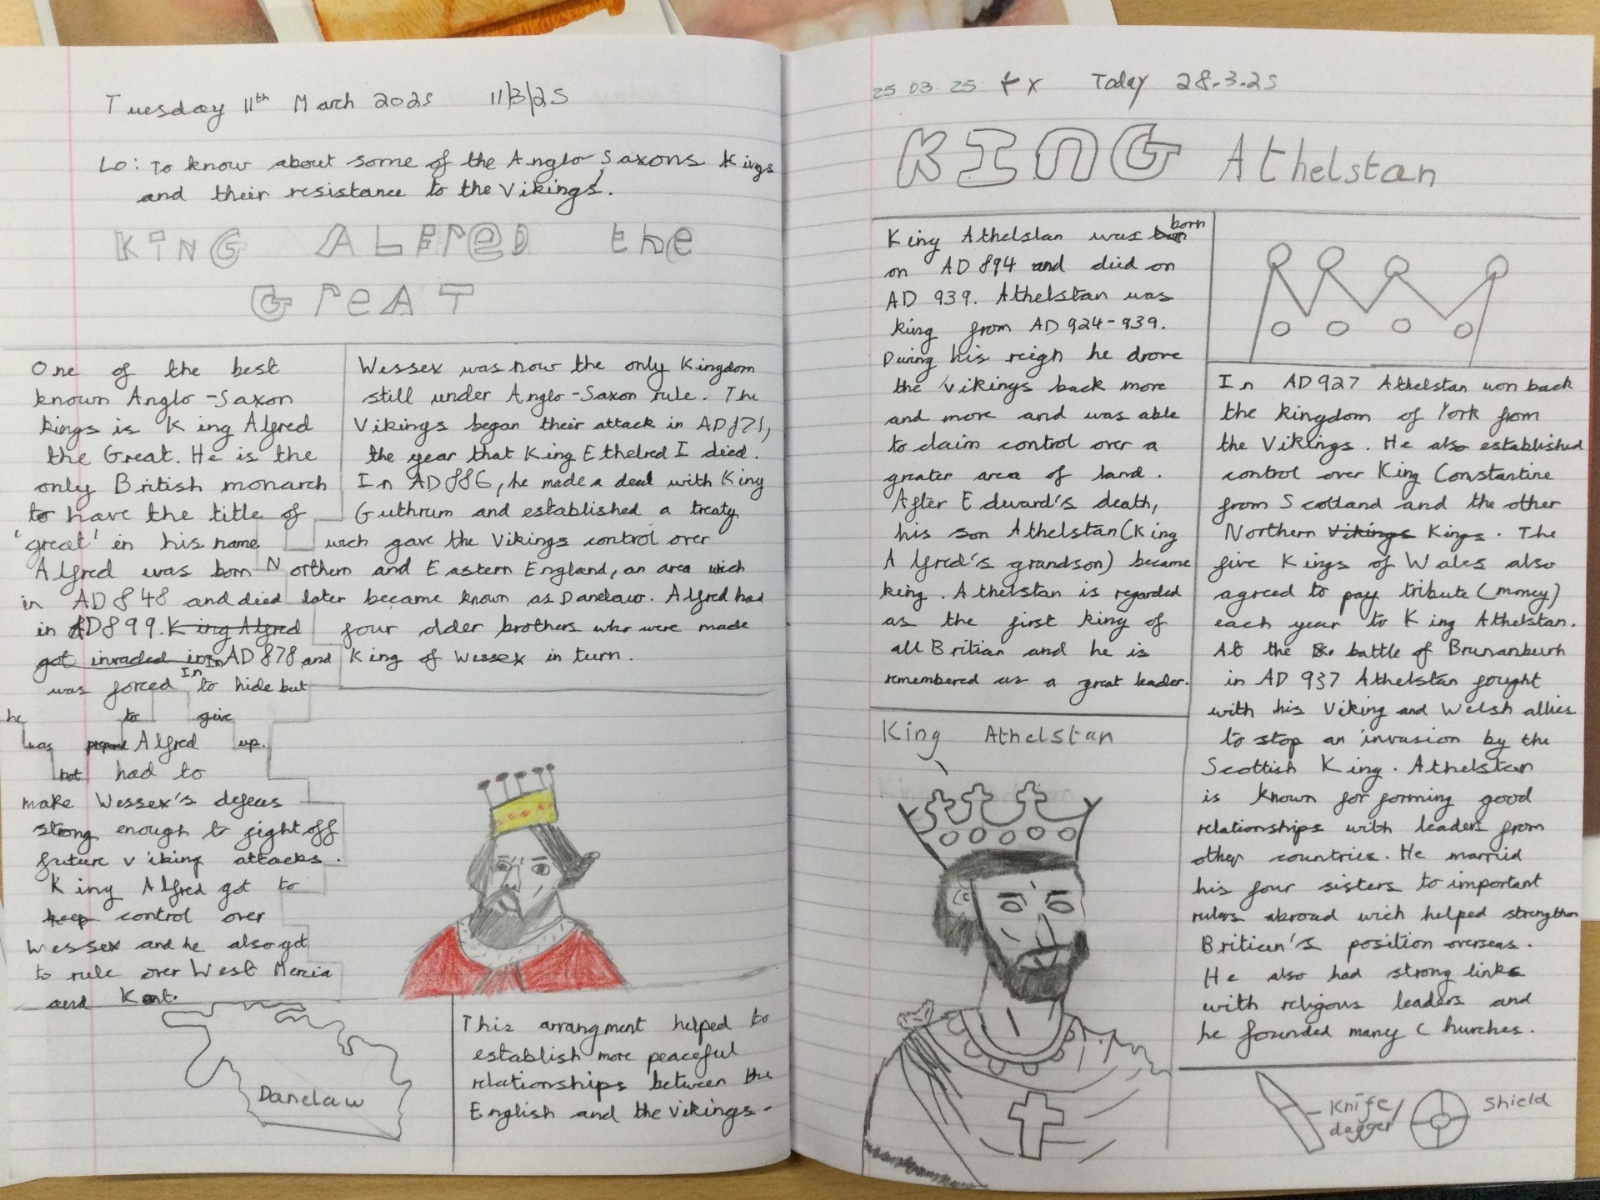 Tuesday 11th March 2025 11/3/25
Lo: To know about some of the Anglo-Saxons Kings
and their resistance to the Vikings.
KING ALFred the
GreAT
One of the best
known Anglo-Saxon
kings is King Alfred
the Great. He is the
only British monarch
to have the title of
'great' in his name
Alfred was born
in AD848 and died
in AD899. King Alfred
got invaded in In AD878 and
was forced In to hide but
he was not prepared to give up.
Alfred
had to
make Wessex's defees
strong enough to fight off
future viking attacks.
King Alfred got to
keep control over
Wessex and he also got
to rule over West Mercia
and Kent.
Wessex was now the only Kingdom
still under Anglo-Saxon rule. The
Vikings began their attack in AD871,
the year that King Ethelred I died.
In AD886, he made a deal with King
Guthrum and established a treaty
wich gave the Vikings control over
Northern and Eastern England, an area wich
later became known as Danelaw. Alfred had
four older brothers who were made
King of Wessex in turn.
Danelaw
This arrangment helped to
establish more peaceful
relationships between the
English and the Vikings.
25.03.25 fx Today 28.3.25
KING Athelstan
King Athelstan was born
on AD 894 and died on
AD 939. Athelstan was
king from AD 924-939.
During his reign he drove
the Vikings back more
and more and was able
to claim control over a
greater area of land.
After Edward's death,
his son Athelstan (King
Alfred's grandson) became
king. Athelstan is regarded
as the first king of
all Britian and he is
remembered as a great leader.
King Athelstan
In AD927 Athelstan won back
the kingdom of York from
the Vikings. He also established
control over King Constantine
from Scotland and the other
Northern Vikings Kings. The
five Kings of Wales also
agreed to pay tribute (money)
each year to King Athelstan.
At the battle of Brunanburh
in AD 937 Athelstan fought
with his Viking and Welsh allies
to stop an invasion by the
Scottish King. Athelstan
is known for forming good
relationships with leaders from
other countries. He married
his four sisters to important
rulers abroad wich helped strengthen
Britien's position overseas.
He also had strong links
with religous leaders and
he founded many Churches.
Knife/
dagger
Shield